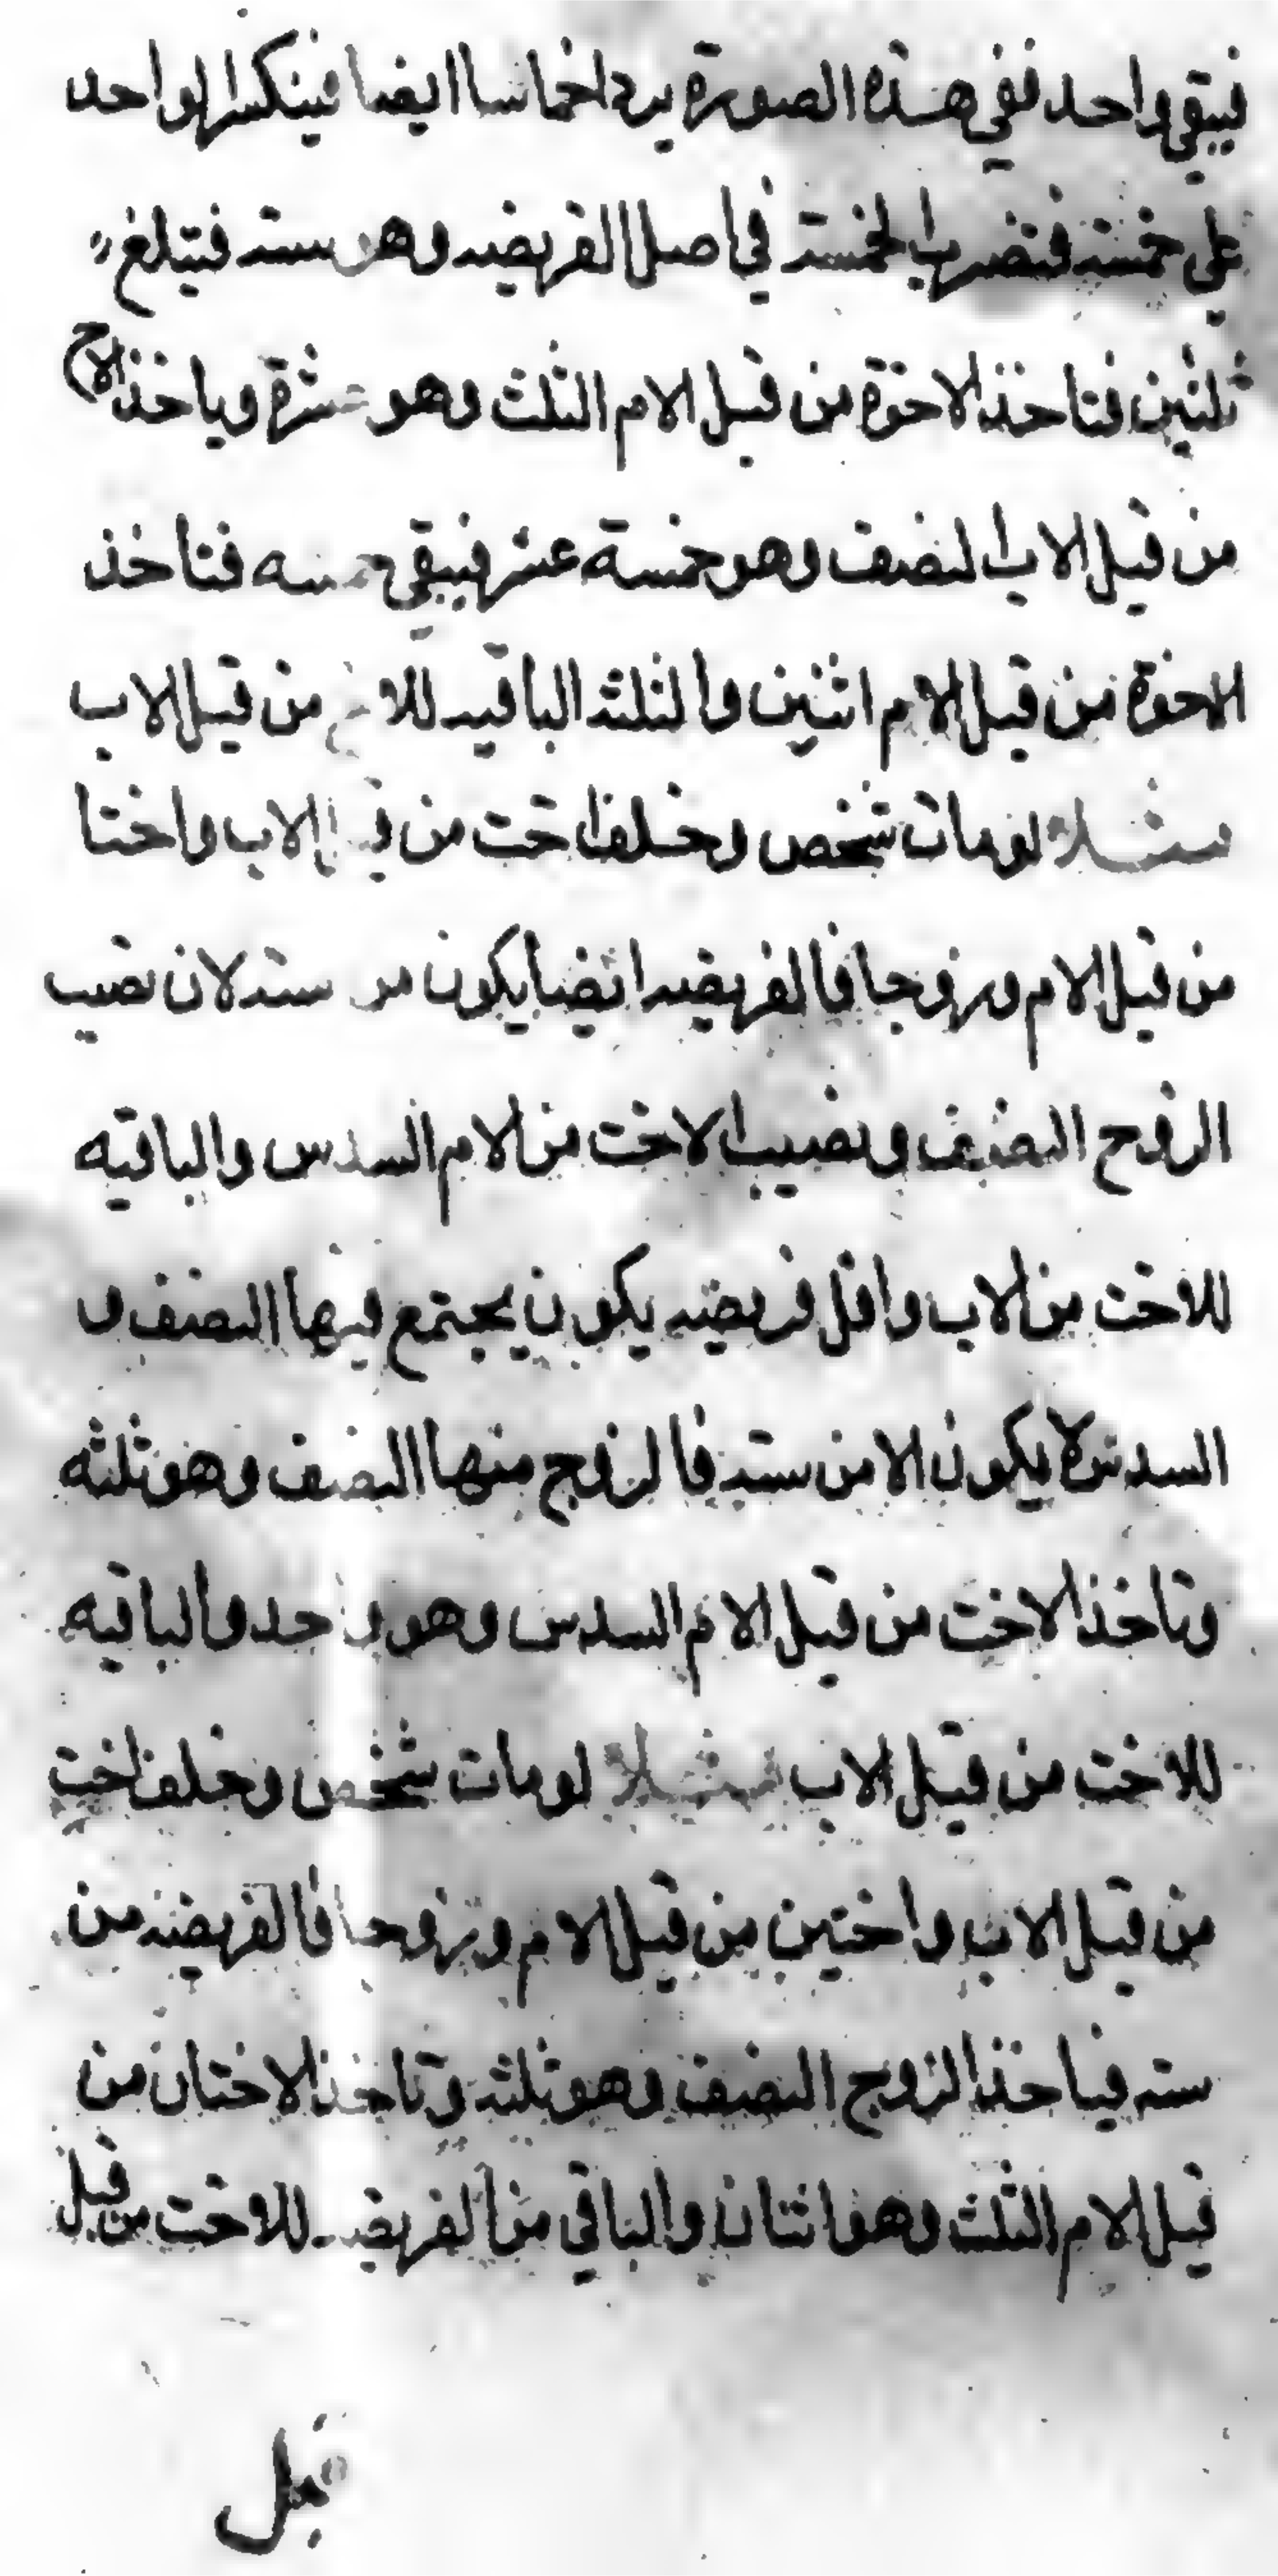 فيبقى واحد ففي هذه الصورة يرد اخماسا ايضا فينكسر الواحد
على خمسة فنضرب الخمسة في اصل الفريضه وهو سته فتبلغ
ثلثين فتاخذ الاخوة من قبل الام الثلث وهو عشرة وياخذ الاخ
من قبل الاب النصف وهو خمسة عشر فيبقى خمسه فتاخذ
الاخوة من قبل الام اثنين والثلثه الباقيه للاخ من قبل الاب
مثلا لو مات شخص وخلف اخت من قبل الاب واختا
من قبل الام وزوجا فالفريضه ايضا يكون من سته لان نصيب
الزوج النصف ونصيب الاخت من الام السدس والباقيه
للاخت من الاب واقل فريضه يكون يجتمع فيها النصف و
السدس لا يكون الا من سته فالزوج منها النصف وهو ثلثه
وتاخذ الاخت من قبل الام السدس وهو واحد والباقيه
للاخت من قبل الاب مثلا لو مات شخص وخلف اخت
من قبل الاب واختين من قبل الام وزوجا فالفريضه من
سته فياخذ الزوج النصف وهو ثلثه وتاخذ الاختان من
قبل الام الثلث وهو اثنتان والباقي من الفريضه للاخت من قبل
قبل